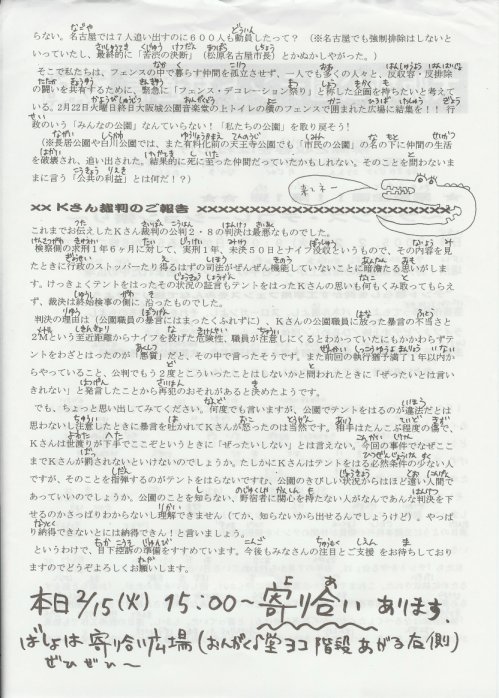 らない。名古屋では7人追い出すのに600人も動員したって？（※名古屋でも強制排除はしないと
いっていたし、最終的に「苦渋の決断」（松原名古屋市長）とかぬかしやがった。）
そこで私たちは、フェンスの中で暮らす仲間を孤立させず、一人でも多くの人々と、反収容・反排除
の闘いを共有するために、緊急に「フェンス・デコレーション祭り」と称した企画を持ちたいと考えて
いる。2月22日火曜日終日大阪城公園音楽堂の上トイレの横のフェンスで囲まれた広場に結集を！！行
政のいう「みんなの公園」なんていらない！「私たちの公園」を取り戻そう！
（※長居公園や白川公園では、また有料化前の天王寺公園でも「市民の公園」の名の下に仲間の生活
を破壊され、追い出された。結果的に死に至った仲間だっていたかもしれない。そのことを問わないま
まに言う「公共の利益」とは何だ！？）
来てネー
×× Kさん裁判のご報告 ××××××××××××××××××××××××
これまでお伝えしたKさん裁判の公判2・8の判決は最悪なものでした。
検察側の求刑1年6ヶ月に対して、実刑1年、未決50日とナイフ没収というもので、その内容を見
たときに行政のストッパーたり得るはずの司法がぜんぜん機能していないことに暗澹たる思いがしま
す。けっきょくテントをはったその状況の証言もテントをはったKさんの思いも何もくみ取ってもらえ
ず、裁決は終始検事の側に沿ったものでした。
判決の理由は（公園職員の暴言にはまったくふれずに）、Kさんの公園職員に放った暴言の不当さと
2Mという至近距離からナイフを投げた危険性、職員が注意しにくるとわかっていたにもかかわらずテ
ントをわざとはったのが「悪質」だと、その中で言ったそうです。また前回の執行猶予満了1年以内か
らやっていること、公判でもう2度とこういったことはしないかと問われたときに「ぜったいとは言い
きれない」と発言したことから再犯のおそれがあると決めたようです。
でも、ちょっと思い出してみてください。何度でも言いますが、公園でテントをはるのが違法だとは
思わないし注意したときに暴言を吐かれてKさんが怒ったのは当然です。相手はたんこぶ程度の傷で、
Kさんは世渡りが下手でここぞというときに「ぜったいしない」とは言えない。今回の事件でなぜここ
までKさんが罰されないといけないのでしょうか。たしかにKさんはテントをはる必然条件の少ない人
ですが、そのことを指弾するのがテントをはらないですむ、公園のきびしい状況からはほど遠い人間で
あっていいのでしょうか。公園のことを知らない、野宿者に関心を持たない人がなんであんな判決を下
せるのかさっぱりわからないし理解できません（てか、知らないから出せるんでしょうけど）。やっぱ
り納得できないとには納得できん！と言いましょう。
というわけで、目下控訴の準備をすすめています。今後もみなさんの注目とご支援をお待ちしており
ますのでどうぞよろしくお願いします。
本日2/15(火) 15:00～寄り合いあります.
ばしょは寄り合い広場(おんがく♪堂ヨコ階段あがる左側)
ぜひぜひ～